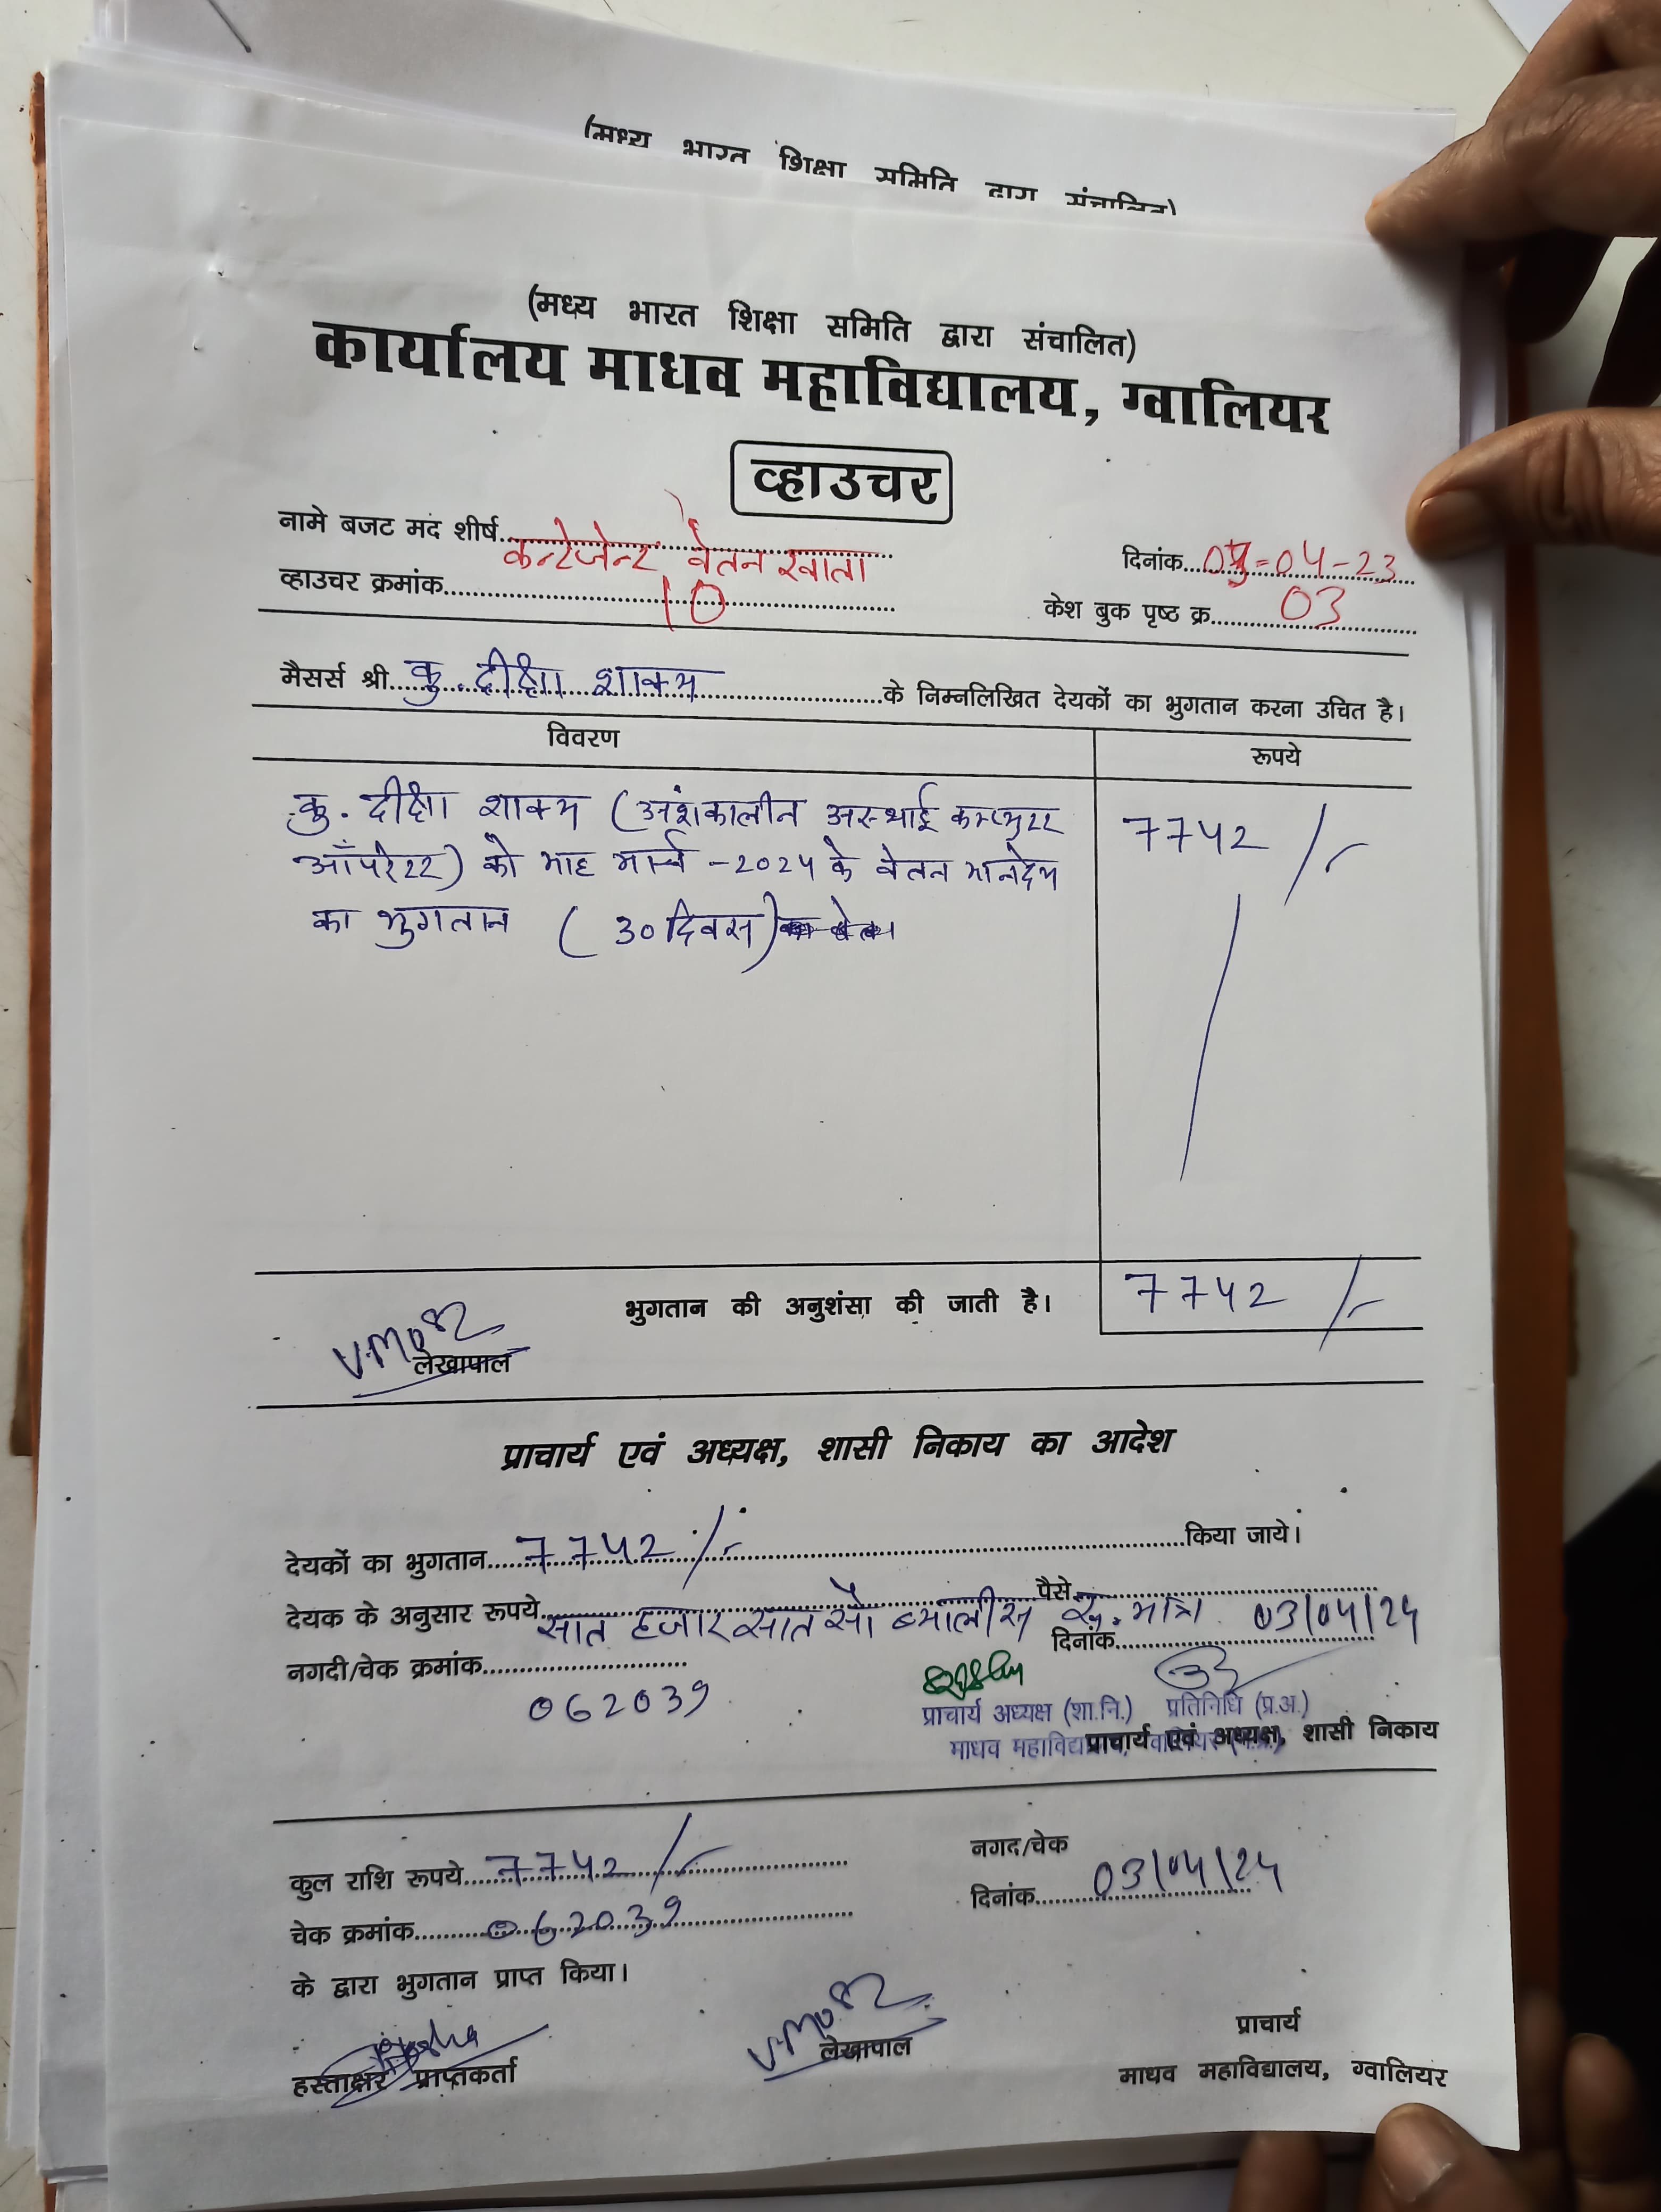 (मध्य भारत शिक्षा समिति द्वारा संचालित)
(मध्य भारत शिक्षा समिति द्वारा संचालित)
कार्यालय माधव महाविद्यालय, ग्वालियर
व्हाउचर
नामे बजट मद शीर्ष कन्टेजेन्ट वेतन खाता
दिनांक 03-04-23
व्हाउचर क्रमांक 10
केश बुक पृष्ठ क्र. 03
मैसर्स श्री कु. दीक्षा शाक्य के निम्नलिखित देयकों का भुगतान करना उचित है।
विवरण रूपये
कु. दीक्षा शाक्य (अंशकालीन अस्थाई कम्प्युटर 7742/-
ऑपरेटर) को माह मार्च -2024 के वेतन मानदेय
का भुगतान (30 दिवस)
भुगतान की अनुशंसा की जाती है। 7742/-
लेखापाल
प्राचार्य एवं अध्यक्ष, शासी निकाय का आदेश
देयकों का भुगतान 7742/- किया जाये।
देयक के अनुसार रूपये सात हजार सात सौ ब्यालीस पैसे रु. मात्र
नगदी/चेक क्रमांक 062039 दिनांक 03/04/24
प्राचार्य अध्यक्ष (शा.नि.) प्रतिनिधि (प्र.अ.)
माधव महाविद्य
प्राचार्य एवं अध्यक्ष, शासी निकाय
कुल राशि रूपये 7742/- नगद/चेक
चेक क्रमांक 062039 दिनांक 03/04/24
के द्वारा भुगतान प्राप्त किया।
हस्ताक्षर प्राप्तकर्ता लेखापाल प्राचार्य
माधव महाविद्यालय, ग्वालियर